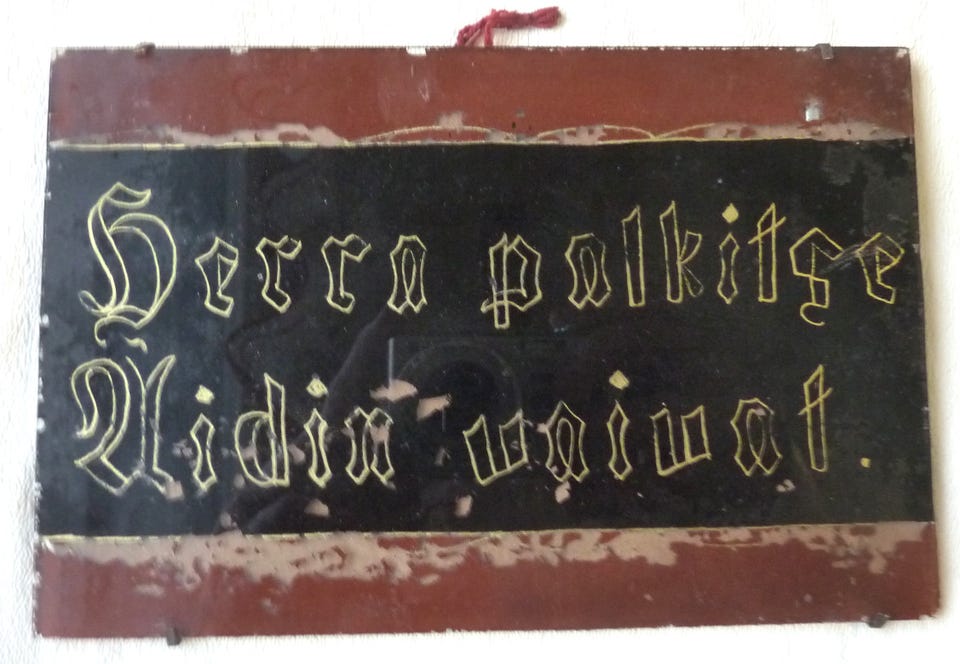 Herra palkitse
Äidin waiwat.